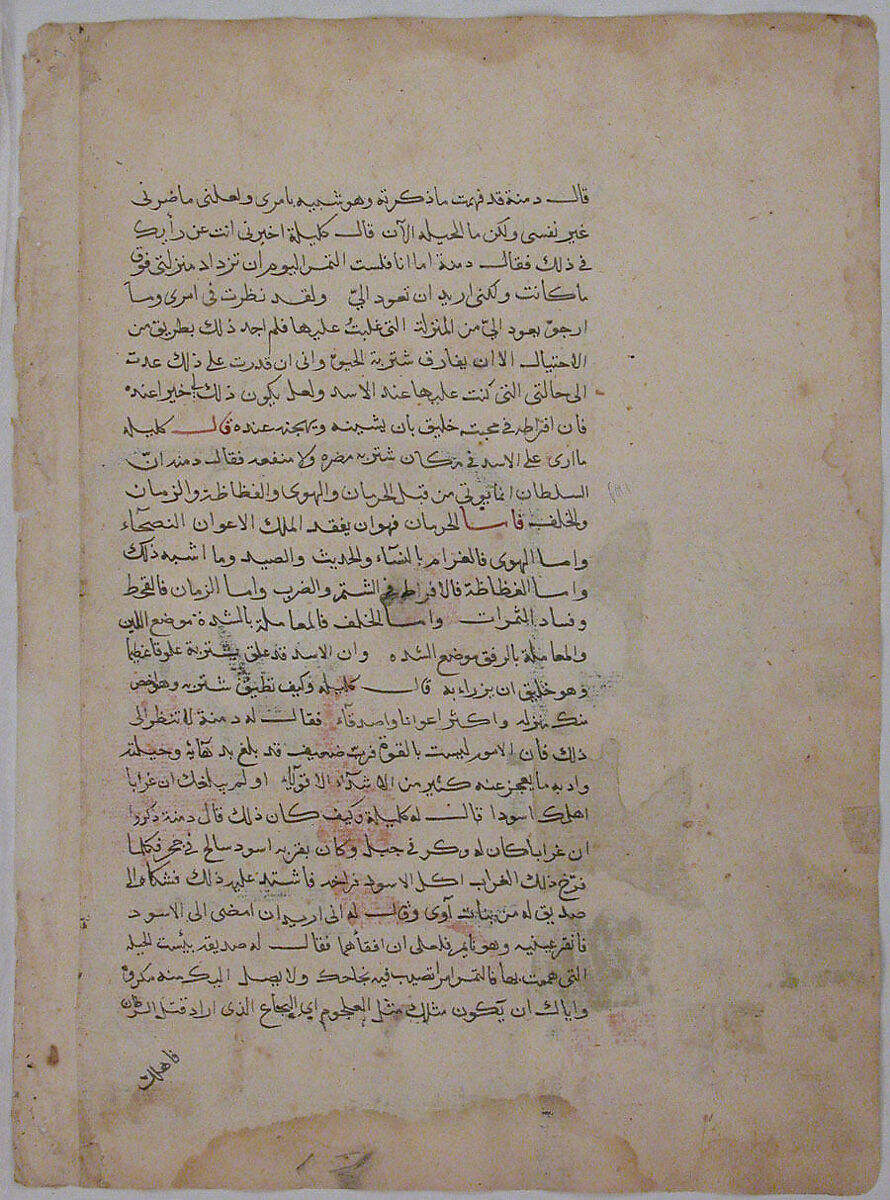 قال دمنة قد فهمت ما ذكرته وهو شبيه بامرى ولعلنى ما ضرنى
غير نفسى ولكن ما الحيله الآن قال كليلة اخبرنى انت عن رأيك
فى ذلك فقال دمنة اما انا فلست التمس اليوم ان تزداد منزلتى فوق
ما كانت ولكنى اريد ان تعود الىّ ولقد نظرت فى امرى وما
ارجو بعود الىّ من المنزلة التى غلبتُ عليها فلم اجد ذلك بطريق من
الاحتيال الا ان يفارق شتربة الحيوة وانى ان قدرت على ذلك عدت
الى حالتى التى كنت عليها عند الاسد ولعل يكون ذلك خيرا عنده
فان افراطه فى محبته خليق بان يشينه ويهجنه عنده قال كليله
ما ارى على الاسد فى مكان شتربه مضره ولا منفعه فقال دمنه انّ
السلطان انما يوتى من قبل الحرمان والهوى والفظاظة والزمان
والخلف فاما الحرمان فهو ان يفقد الملك الاعوان النصحآء
واما الهوى فالغرام بالنسآء والحديث والصيد وما اشبه ذلك
واما الفظاظة فالافراط فى الشتم والضرب واما الزمان فالقحط
وفساد الثمرات واما الخلف فالمعاملة بالشدة موضع اللين
والمعاملة بالرفق موضع الشده وان الاسد قد علق بشتربة علوقا عظيما
وهو خليق ان يزراء به قال كليله وكيف تطيق شتربه وهو اخص
منك منزله واكثر اعوانا واصدقآء فقال له دمنة لا تنظر الى
ذلك فان الامور ليست بالقوة فرب ضعيف قد بلغ بدهائه وحيلته
وادبه ما يعجز عنه كثير من الاشدآء الاقويآء اولم يبلغك ان غرابا
اهلك اسودا قال له كليلة وكيف كان ذلك قال دمنة ذكروا
ان غرابا كان له وكر فى جبل وكان بقربه اسود سالح فى جحر فكلما
فرّخ ذلك الغراب اكل الاسود فراخه فاشتد عليه ذلك فشكا الى
صديق له من بنات آوى وقال له انى اريد ان امضى الى الاسود
فانقر عينيه وهو نايم فلعلى ان افقأهما فقال له صديقه بيئست الحيله
التى هممت بها فالتمس امرا تصيب فيه نجاحك ولا يصل اليك منه مكروه
واياك ان يكون مثلك مثل العلجوم اى البجاع الذى اراد قتل السرطان
فاهلك